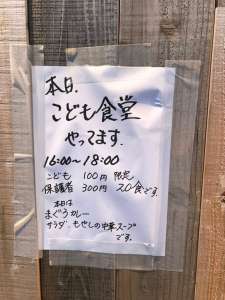 本日.
こども食堂
やってます.
16:00〜18:00
こども 100円 限定
保護者 300円 20食です.
本日は
まぐろカレー
サラダ、もやしの中華スープ
です.